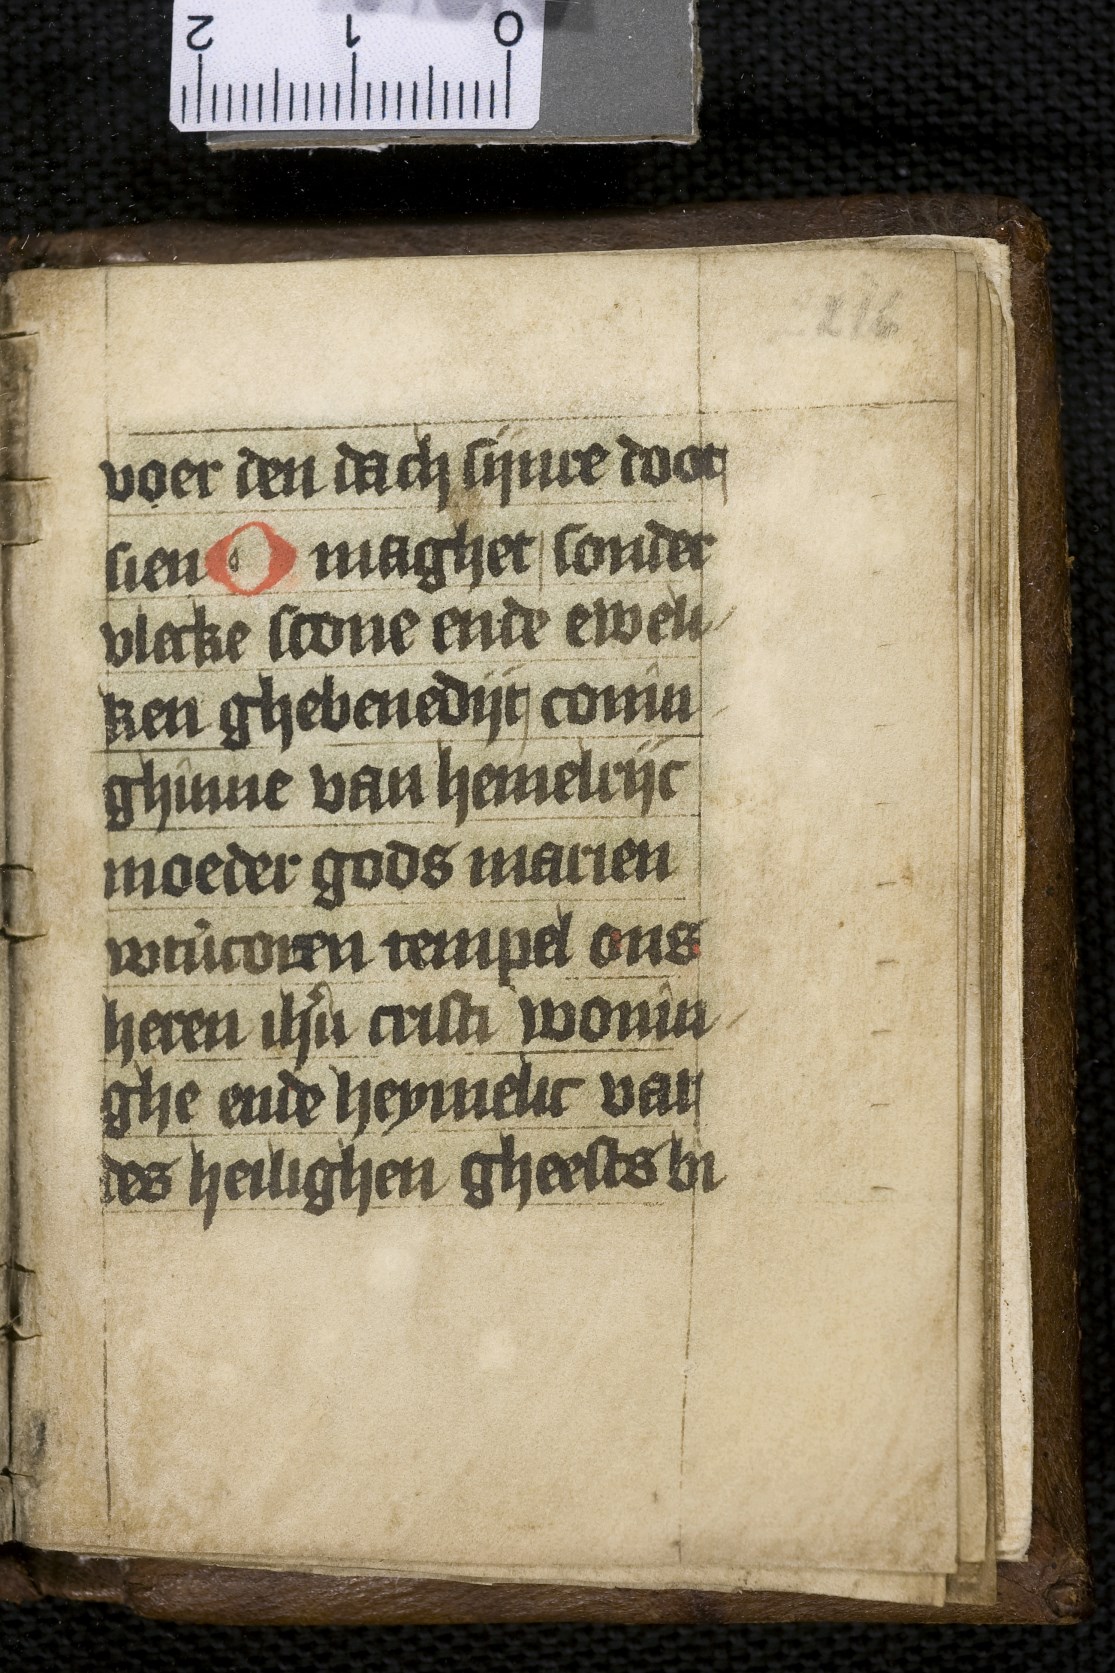 2 1 0
216
voer den dach sijnre doot
sien O maghet sonder
vlecke scone ende eweli
ken ghebenedijt conin
ghinne van hemelrijc
moeder gods marien
wtûcoren tempel ons
heren ihũ cristi wonin
ghe ende heymelic vat
des heilighen gheests bi